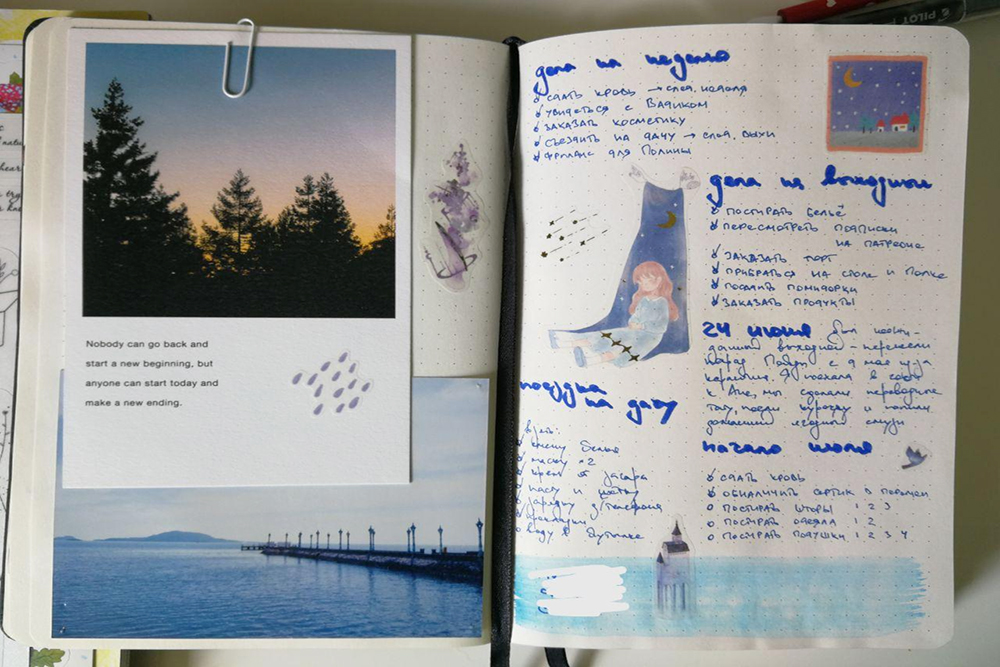 Nobody can go back and
start a new beginning, but
anyone can start today and
make a new ending.
дела на неделю
сдать кровь → след. неделя
увидеться с Вадиком
заказать косметику
съездить на дачу → след. выхи
фриланс для Полины
дела на выходные
постирать бельё
пересмотреть подписки
на патреоне
заказать торт
прибраться на столе и полке
посолить помидорки
заказать продукты
24 июня был
выходной - перенесли
парад Победы с 9 мая из-за
карантина. Я поехала в
к Ане, мы сделали переводные
тату, поели курочку и попили
домашний ягодный смузи
поездка
на дачу
взять:
смену белья
маску x2
крем от загара
пасту и щётку
зарядку д/телефона
воду в бутылке
начало июля
сдать кровь
обналичить сертик
постирать шторы 1 2 3
постирать одеяла 1 2
постирать подушки 1 2 3 4
PILOT